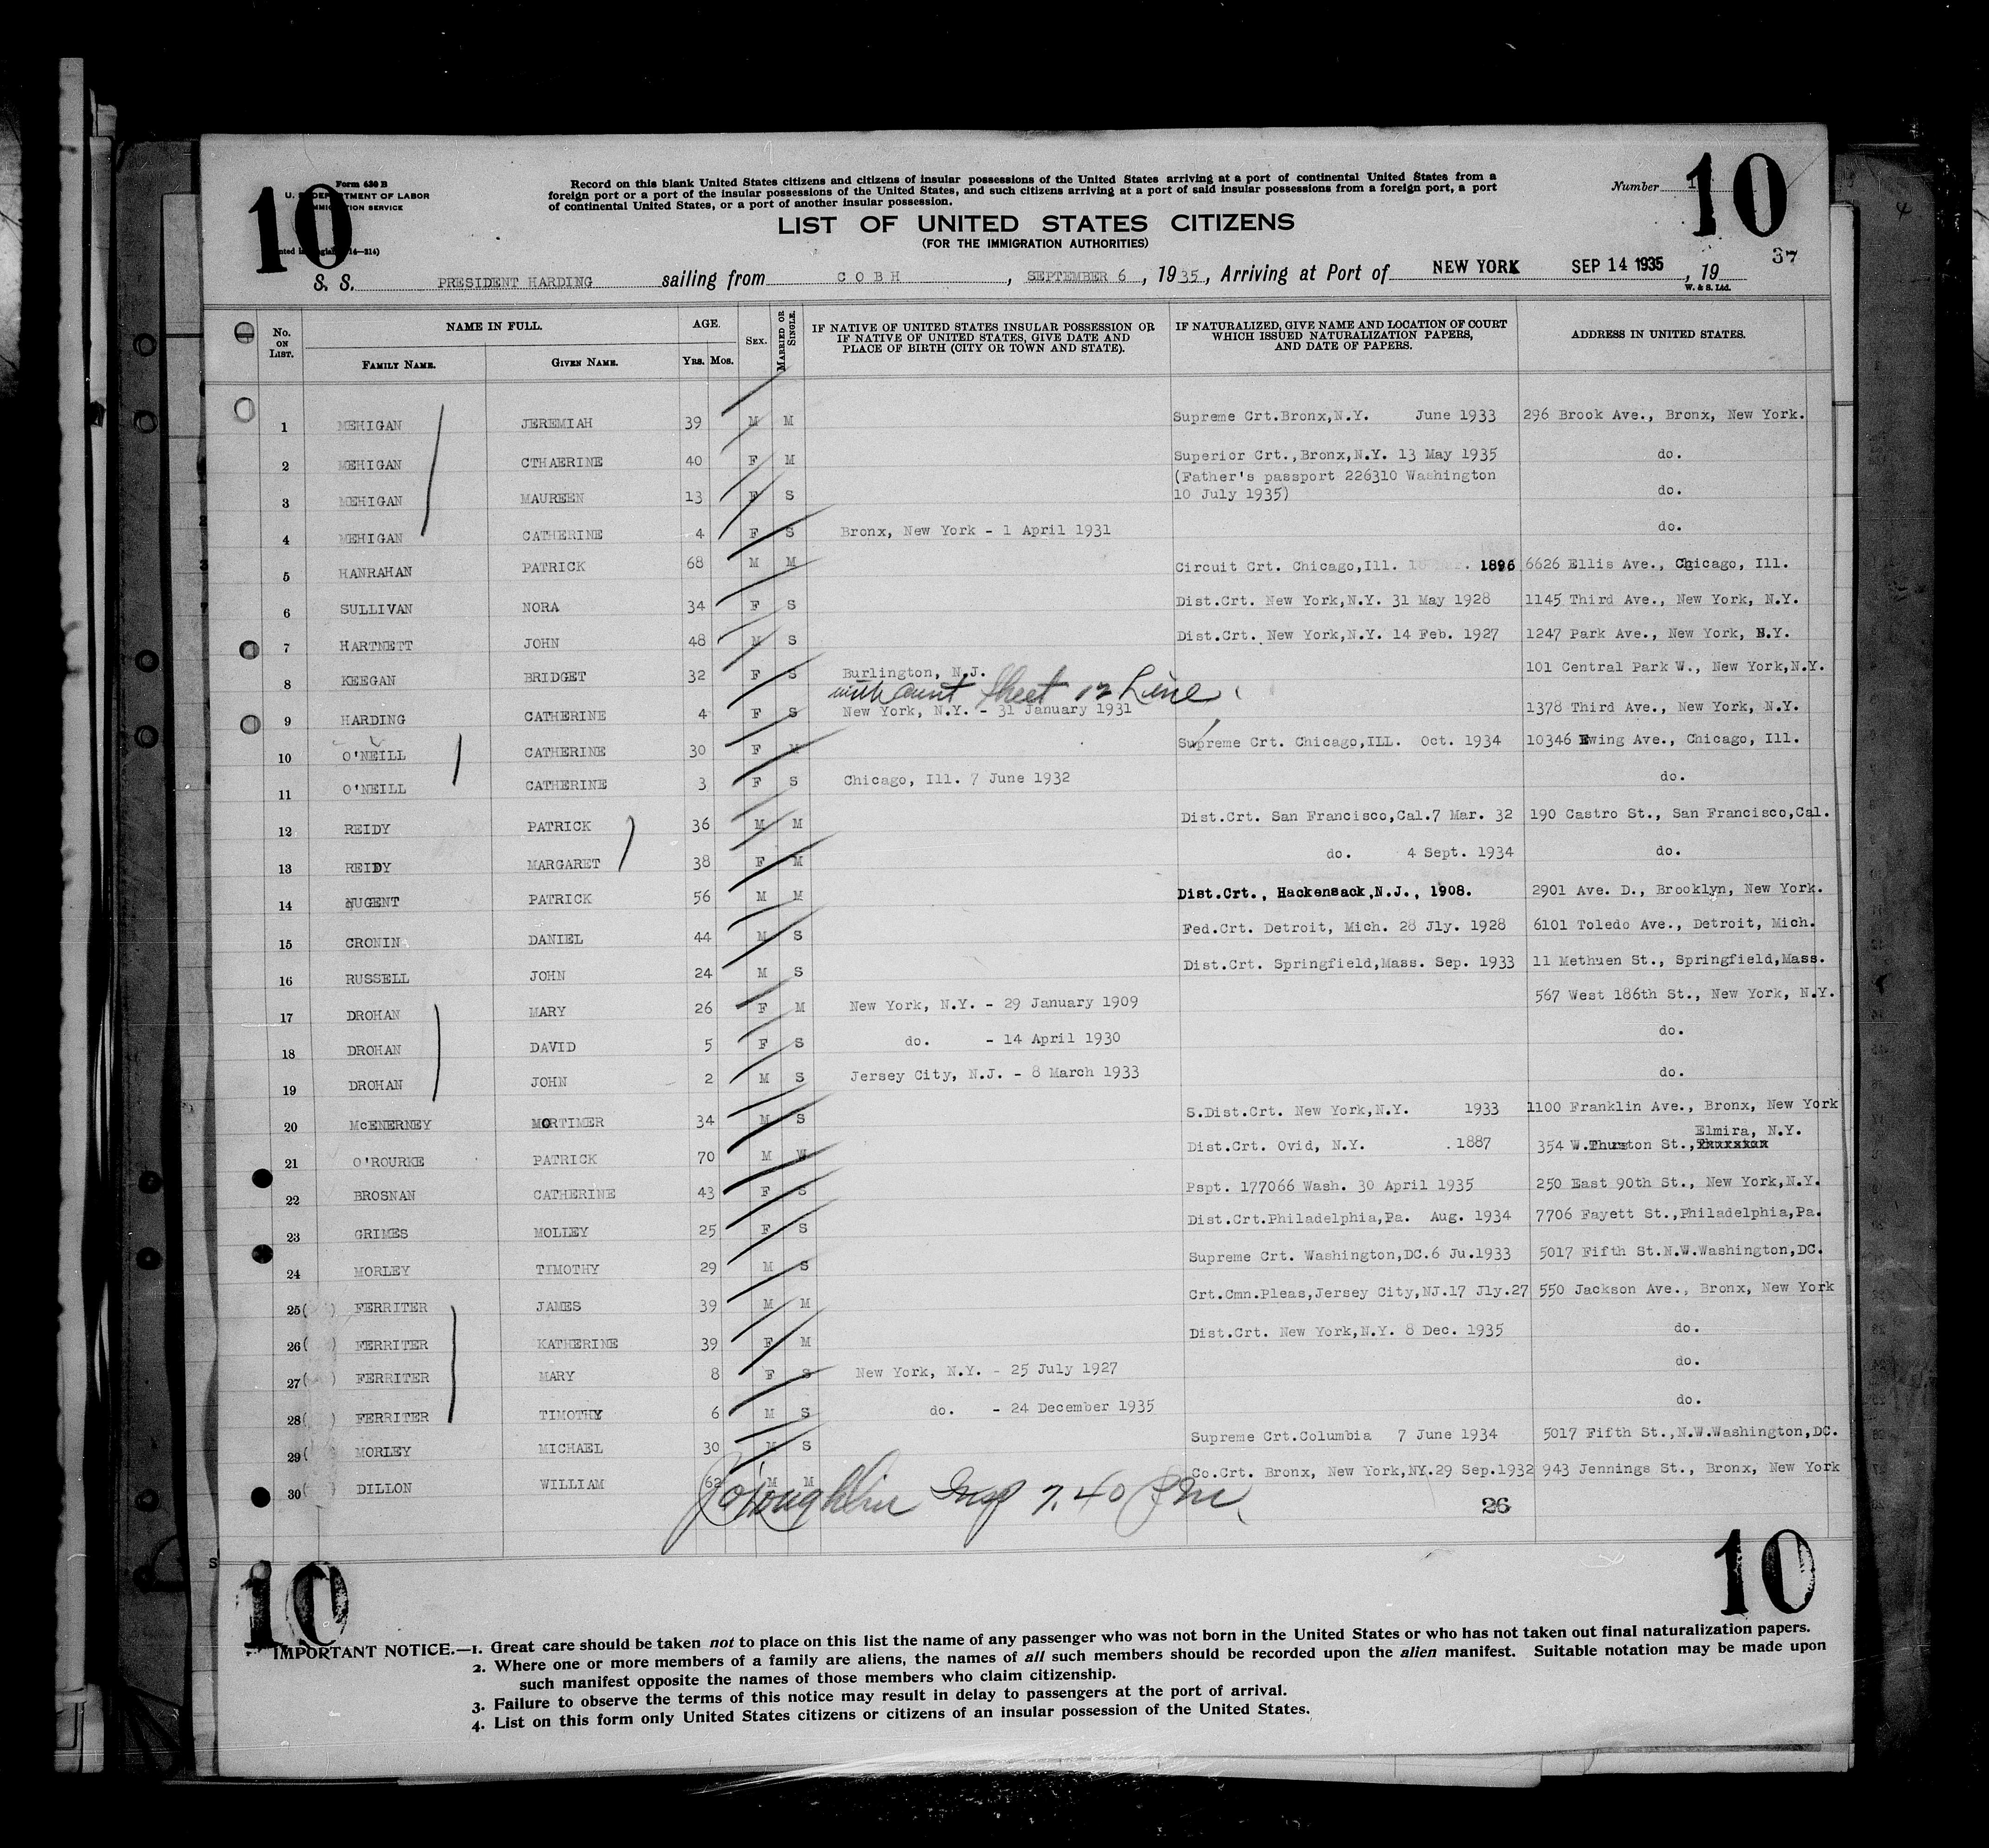 10
10
Form 630 B
U. S. DEPARTMENT OF LABOR
IMMIGRATION SERVICE
Record on this blank United States citizens and citizens of insular possessions of the United States arriving at a port of continental United States from a
foreign port or a port of the insular possessions of the United States, and such citizens arriving at a port of said insular possessions from a foreign port, a port
of continental United States, or a port of another insular possession.
Number
LIST OF UNITED STATES CITIZENS
(FOR THE IMMIGRATION AUTHORITIES)
37
S. S. PRESIDENT HARDING sailing from COBH, SEPTEMBER 6, 1935, Arriving at Port of NEW YORK SEP 14 1935, 19
W. & S. Ltd.
No. ON LIST. NAME IN FULL. FAMILY NAME. GIVEN NAME. AGE. YRS. MOS. SEX. MARRIED OR SINGLE. IF NATIVE OF UNITED STATES INSULAR POSSESSION OR IF NATIVE OF UNITED STATES, GIVE DATE AND PLACE OF BIRTH (CITY OR TOWN AND STATE). IF NATURALIZED, GIVE NAME AND LOCATION OF COURT WHICH ISSUED NATURALIZATION PAPERS, AND DATE OF PAPERS. ADDRESS IN UNITED STATES.
1 MEHIGAN JEREMIAH 39 M M Supreme Crt.Bronx,N.Y. June 1933 296 Brook Ave., Bronx, New York.
2 MEHIGAN CTHAERINE 40 F M Superior Crt.,Bronx,N.Y. 13 May 1935 do.
3 MEHIGAN MAUREEN 13 F S (Father's passport 226310 Washington 10 July 1935) do.
4 MEHIGAN CATHERINE 4 F S Bronx, New York - 1 April 1931 do.
5 HANRAHAN PATRICK 68 M M Circuit Crt. Chicago,Ill. 1896 6626 Ellis Ave., Chicago, Ill.
6 SULLIVAN NORA 34 F S Dist.Crt. New York,N.Y. 31 May 1928 1145 Third Ave., New York, N.Y.
7 HARTNETT JOHN 48 M S Dist.Crt. New York,N.Y. 14 Feb. 1927 1247 Park Ave., New York, N.Y.
8 KEEGAN BRIDGET 32 F S Burlington, N.J. 101 Central Park W., New York,N.Y.
with aunt Sheet 12 Line
9 HARDING CATHERINE 4 F S New York, N.Y. - 31 January 1931 1378 Third Ave., New York, N.Y.
10 O'NEILL CATHERINE 30 F M Supreme Crt. Chicago,ILL. Oct. 1934 10346 Ewing Ave., Chicago, Ill.
11 O'NEILL CATHERINE 3 F S Chicago, Ill. 7 June 1932 do.
12 REIDY PATRICK 36 M M Dist.Crt. San Francisco,Cal.7 Mar. 32 190 Castro St., San Francisco,Cal.
13 REIDY MARGARET 38 F M do. 4 Sept. 1934 do.
14 NUGENT PATRICK 56 M M Dist.Crt., Hackensack,N.J., 1908. 2901 Ave. D., Brooklyn, New York.
15 CRONIN DANIEL 44 M S Fed.Crt. Detroit, Mich. 28 Jly. 1928 6101 Toledo Ave., Detroit, Mich.
16 RUSSELL JOHN 24 M S Dist.Crt. Springfield,Mass. Sep. 1933 11 Methuen St., Springfield,Mass.
17 DROHAN MARY 26 F M New York, N.Y. - 29 January 1909 567 West 186th St., New York, N.Y.
18 DROHAN DAVID 5 F S do. - 14 April 1930 do.
19 DROHAN JOHN 2 M S Jersey City, N.J. - 8 March 1933 do.
20 McENERNEY MORTIMER 34 M S S.Dist.Crt. New York,N.Y. 1933 1100 Franklin Ave., Bronx, New York
21 O'ROURKE PATRICK 70 M W Dist.Crt. Ovid, N.Y. 1887 354 W.Thurston St., Elmira, N.Y.
22 BROSNAN CATHERINE 43 F S Pspt. 177066 Wash. 30 April 1935 250 East 90th St., New York,N.Y.
23 GRIMES MOLLEY 25 F S Dist.Crt.Philadelphia,Pa. Aug. 1934 7706 Fayett St.,Philadelphia,Pa.
24 MORLEY TIMOTHY 29 M S Supreme Crt. Washington,DC.6 Ju.1933 5017 Fifth St.N.W.Washington,DC.
25( ) FERRITER JAMES 39 M M Crt.Cmn.Pleas,Jersey City,NJ.17 Jly.27 550 Jackson Ave., Bronx, New York
26( ) FERRITER KATHERINE 39 F M Dist.Crt. New York,N.Y. 8 Dec. 1935 do.
27( ) FERRITER MARY 8 F S New York, N.Y. - 25 July 1927 do.
28( ) FERRITER TIMOTHY 6 M S do. - 24 December 1935 do.
29( MORLEY MICHAEL 30 M S Supreme Crt.Columbia 7 June 1934 5017 Fifth St.,N.W.Washington,DC.
30( ) DILLON WILLIAM 62 M M Co.Crt. Bronx, New York,NY.29 Sep.1932 943 Jennings St., Bronx, New York
O'Loughlin Insp 7.40 Pm
26
10
10
IMPORTANT NOTICE.—1. Great care should be taken not to place on this list the name of any passenger who was not born in the United States or who has not taken out final naturalization papers.
2. Where one or more members of a family are aliens, the names of all such members should be recorded upon the alien manifest. Suitable notation may be made upon
such manifest opposite the names of those members who claim citizenship.
3. Failure to observe the terms of this notice may result in delay to passengers at the port of arrival.
4. List on this form only United States citizens or citizens of an insular possession of the United States.